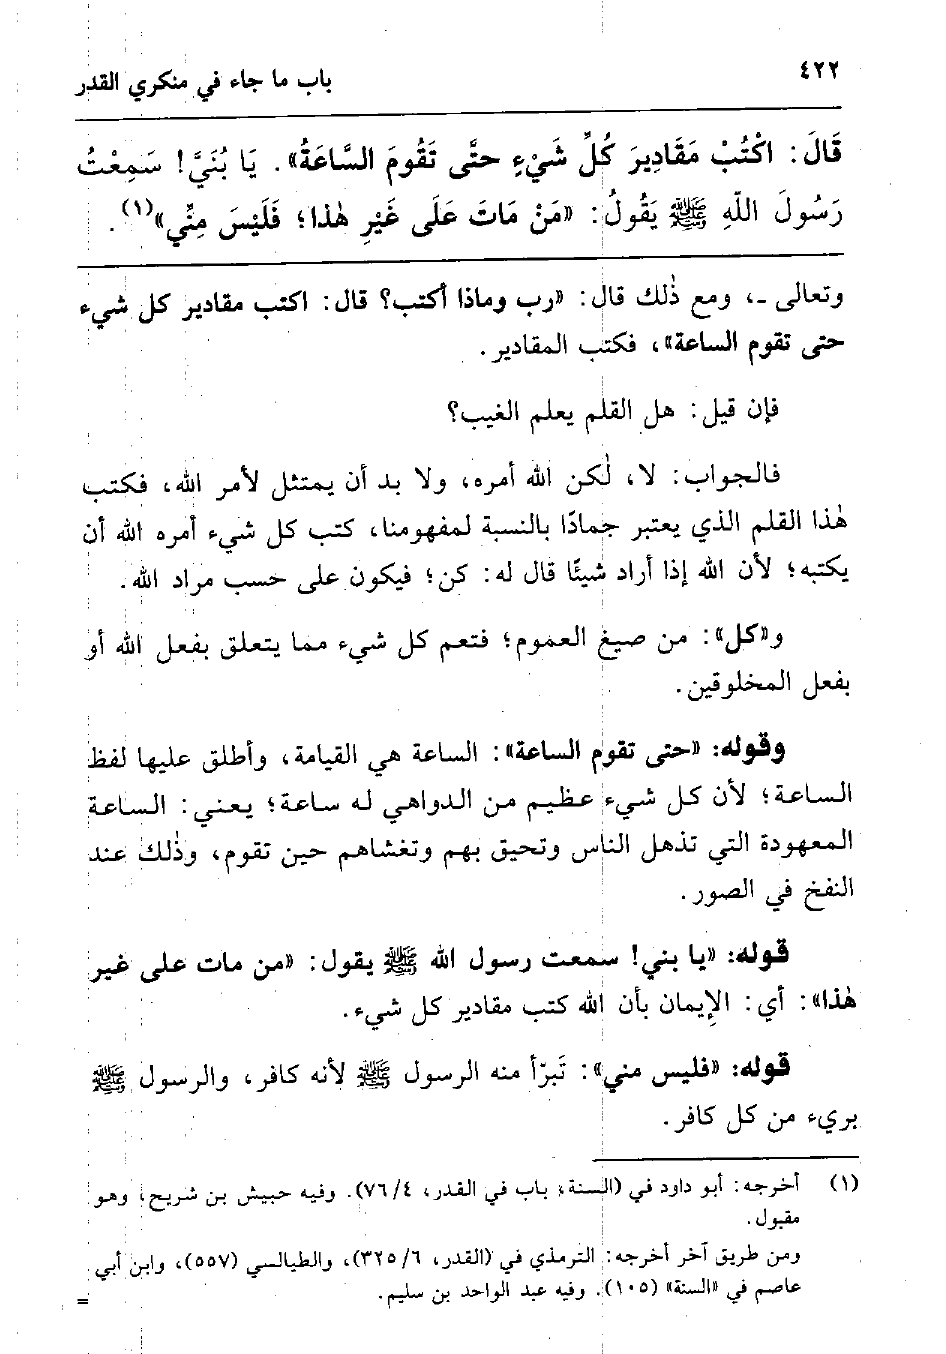 ٤٢٢
باب ما جاء في منكري القدر
قَالَ: اكْتُبْ مَقَادِيرَ كُلِّ شَيْءٍ حتَّى تَقُومَ السَّاعَةُ». يَا بُنَيَّ! سَمِعْتُ
رَسُولَ اللّهِ ﷺ يَقُولُ: «مَنْ مَاتَ عَلَى غَيْرِ هٰذا؛ فَلَيْسَ مِنِّي»(١).
وتعالى -، ومع ذٰلك قال: «رب وماذا أكتب؟ قال: اكتب مقادير كل شيء
حتى تقوم الساعة»، فكتب المقادير.
فإن قيل: هل القلم يعلم الغيب؟
فالجواب: لا، لٰكن الله أمره، ولا بد أن يمتثل لأمر الله، فكتب
هٰذا القلم الذي يعتبر جمادًا بالنسبة لمفهومنا، كتب كل شيء أمره الله أن
يكتبه؛ لأن الله إذا أراد شيئًا قال له: كن؛ فيكون على حسب مراد الله.
و«كل»: من صيغ العموم؛ فتعم كل شيء مما يتعلق بفعل الله أو
بفعل المخلوقين.
وقوله: «حتى تقوم الساعة»: الساعة هي القيامة، وأطلق عليها لفظ
الساعة؛ لأن كل شيء عظيم من الدواهي له ساعة؛ يعني: الساعة
المعهودة التي تذهل الناس وتحيق بهم وتغشاهم حين تقوم، وذٰلك عند
النفخ في الصور.
قوله: «يا بني! سمعت رسول الله ﷺ يقول: «من مات على غير
هٰذا»: أي: الإِيمان بأن الله كتب مقادير كل شيء.
قوله: «فليس مني»: تَبرّأ منه الرسول ﷺ لأنه كافر، والرسول ﷺ
بريء من كل كافر.
(١) أخرجه: أبو داود في (السنة، باب في القدر، ٧٦/٤). وفيه حبيش بن شريح، وهو
مقبول.
ومن طريق آخر أخرجه: الترمذي في (القدر، ٣٢٥/٦)، والطيالسي (٥٥٧)، وابن أبي
عاصم في «السنة» (١٠٥). وفيه عبد الواحد بن سليم.
=